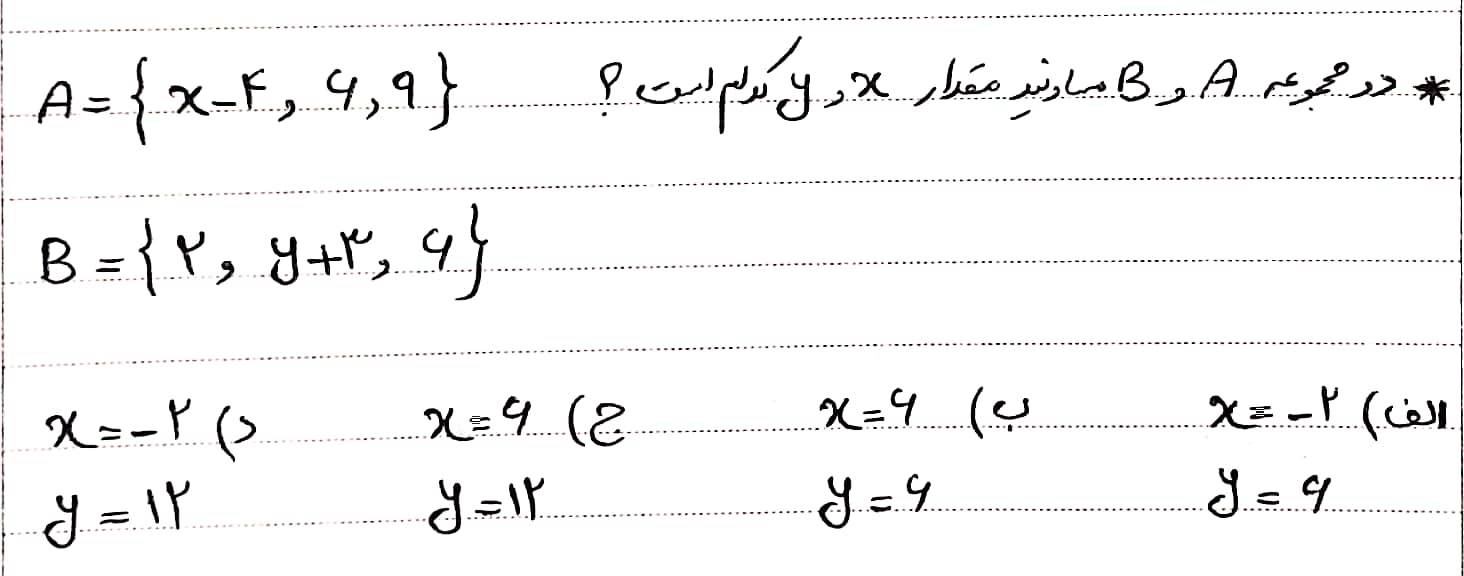 * دو مجموعه A و B مساویند مقدار x و y کدام است ؟ A = { x-۴ , ۶ , ۹ }
B = { ۲ , y+۳ , ۶ }
الف) x = -۲ ب) x = ۶ ج) x = ۶ د) x = -۲
y = ۶ y = ۶ y = ۱۲ y = ۱۲